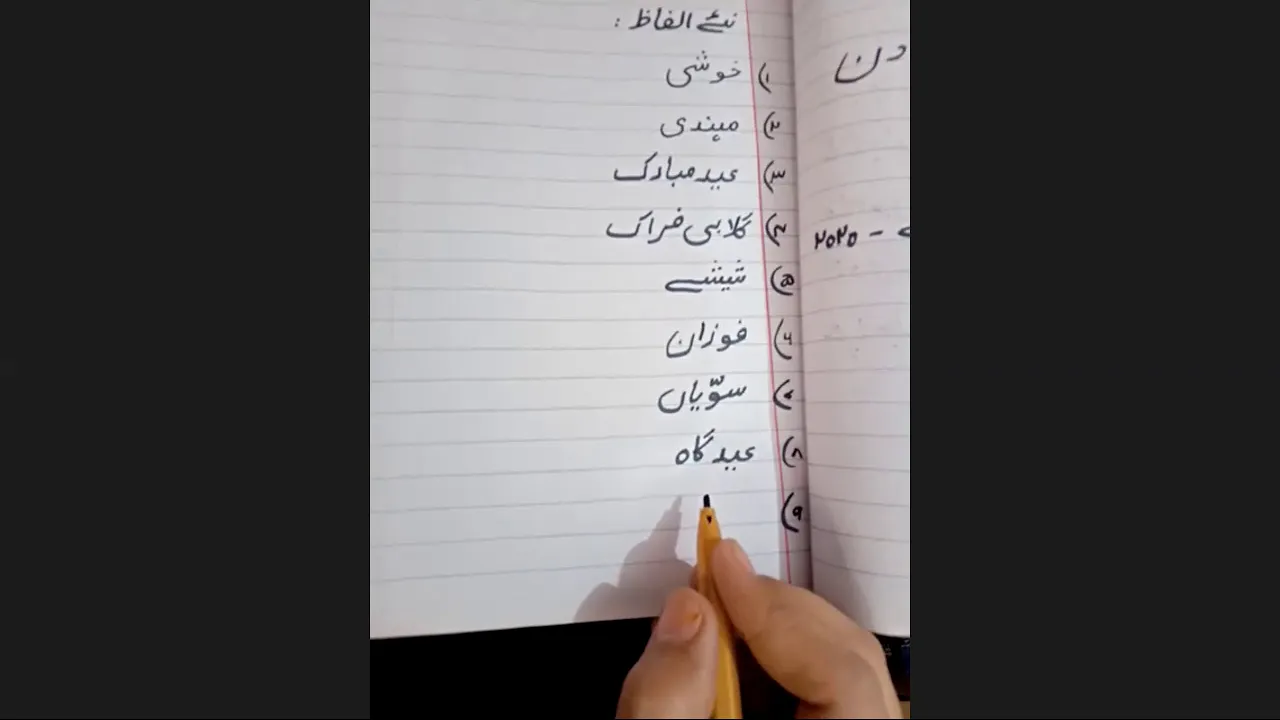 نئے الفاظ :
۱) خوشی
۲) مہندی
۳) عید مبارک
۴) گلابی فراک
۵) شیشے
۶) فوزان
۷) سوّیاں
۸) عید گاہ
۹)
دن
۲۰۲۰ -